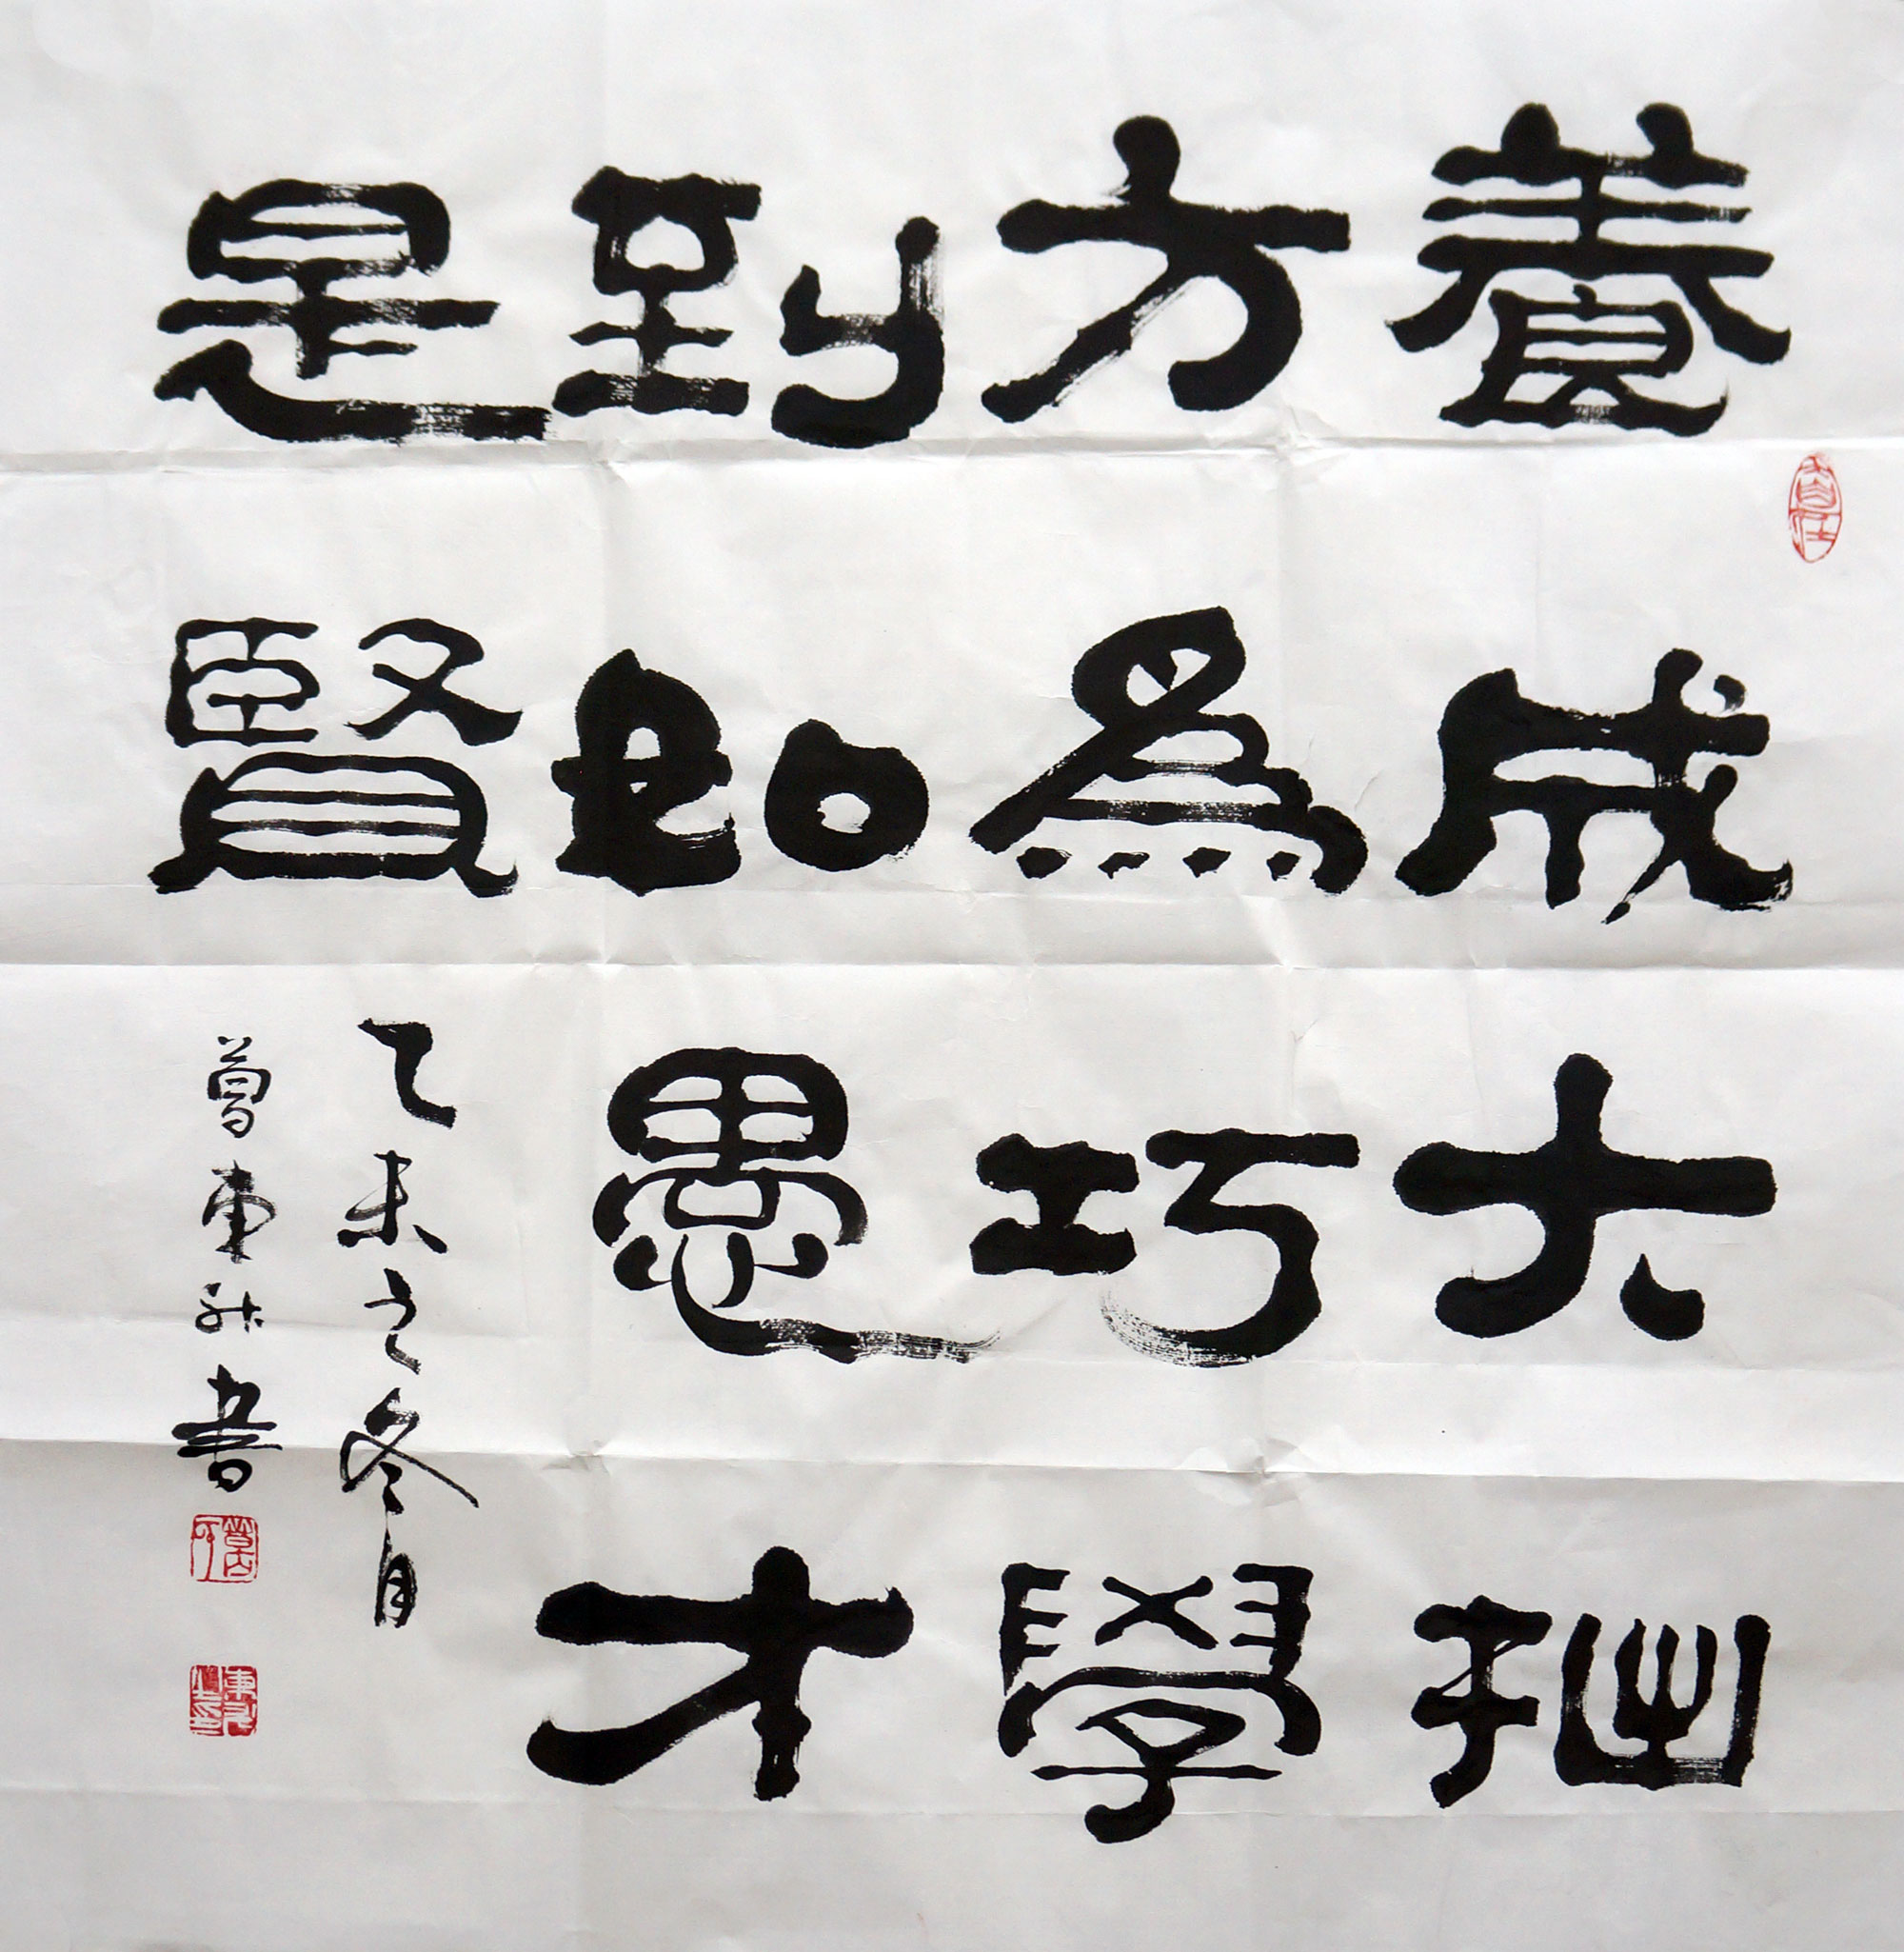 養成大拙
方為巧學
到如愚才
是賢
乙未之冬月
曾東書